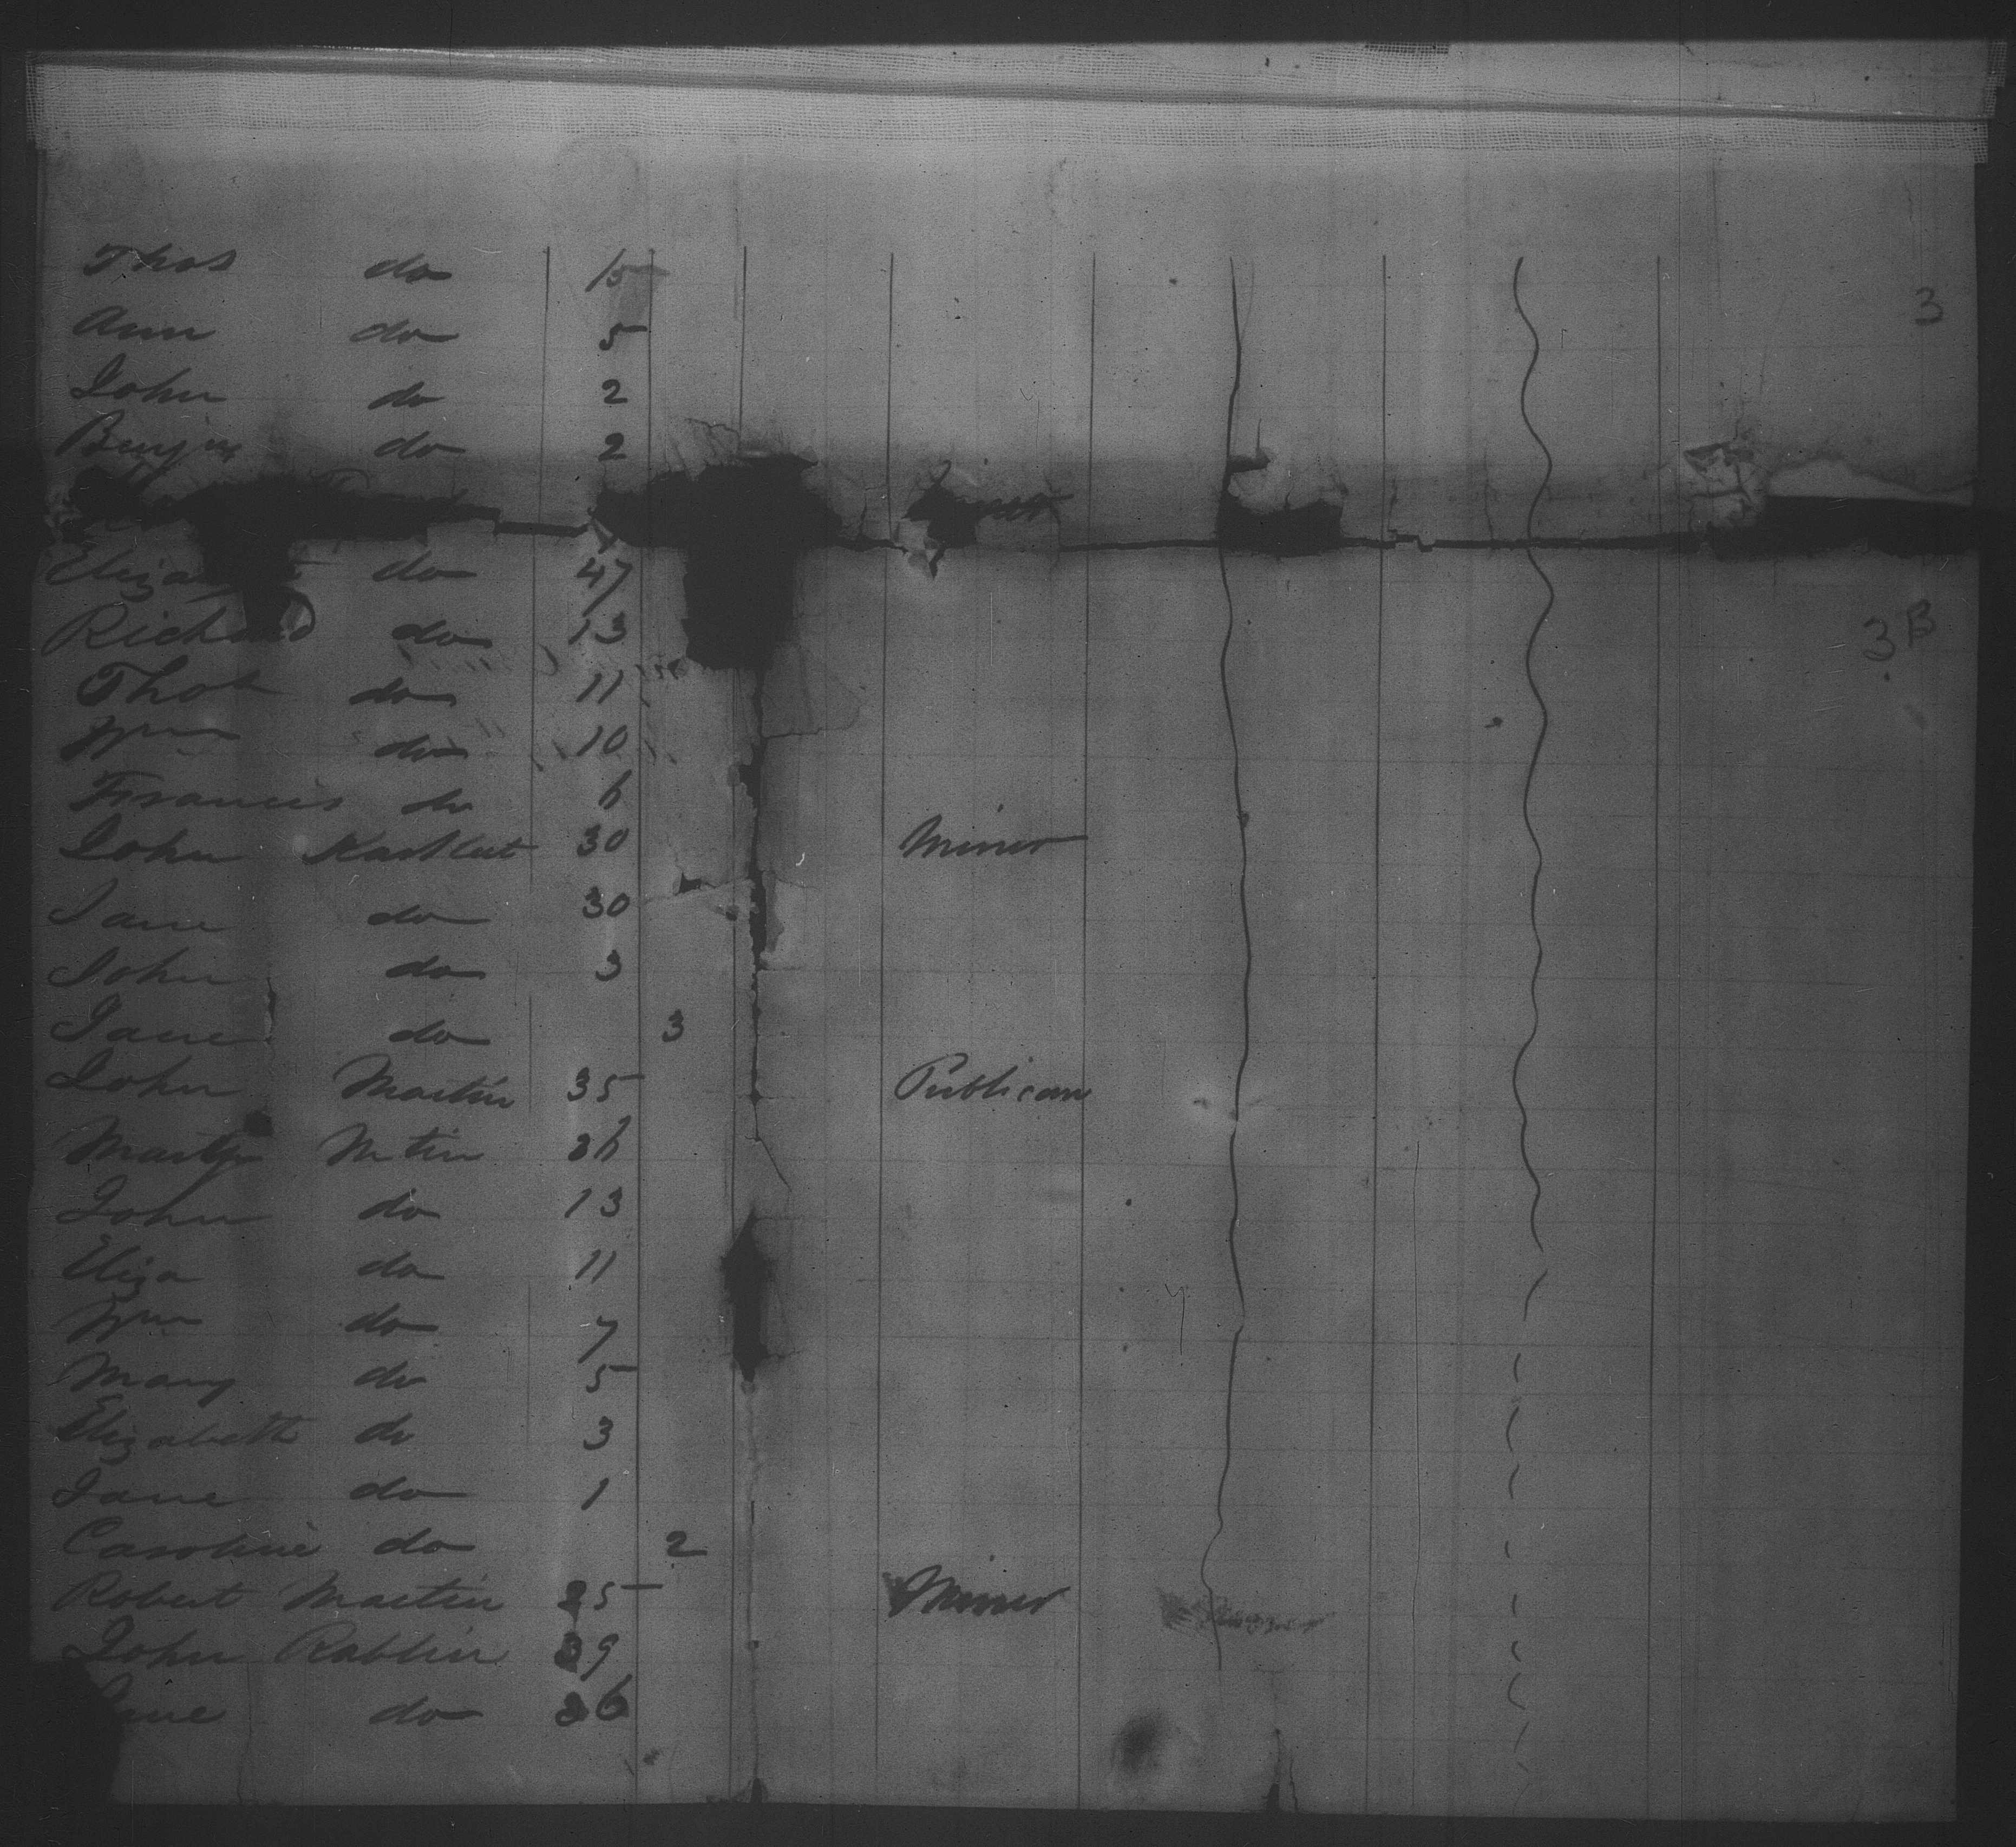 Thos do 15
3
Ann do 5
John do 2
Benjn do 2
Eliza do 47
Richard do 13
3B
Thos do 11
Wm do 10
Francis do 6
John 30 Miner
Jane do 30
John do 3
Jane do 3
John Martin 35 Publican
Martin 36
John do 13
Eliza do 11
Wm do 7
Mary do 5
Elizabeth do 3
Jane do 1
Caroline do 2
Robert Martin 25 Miner
John Rablin 39
do 36